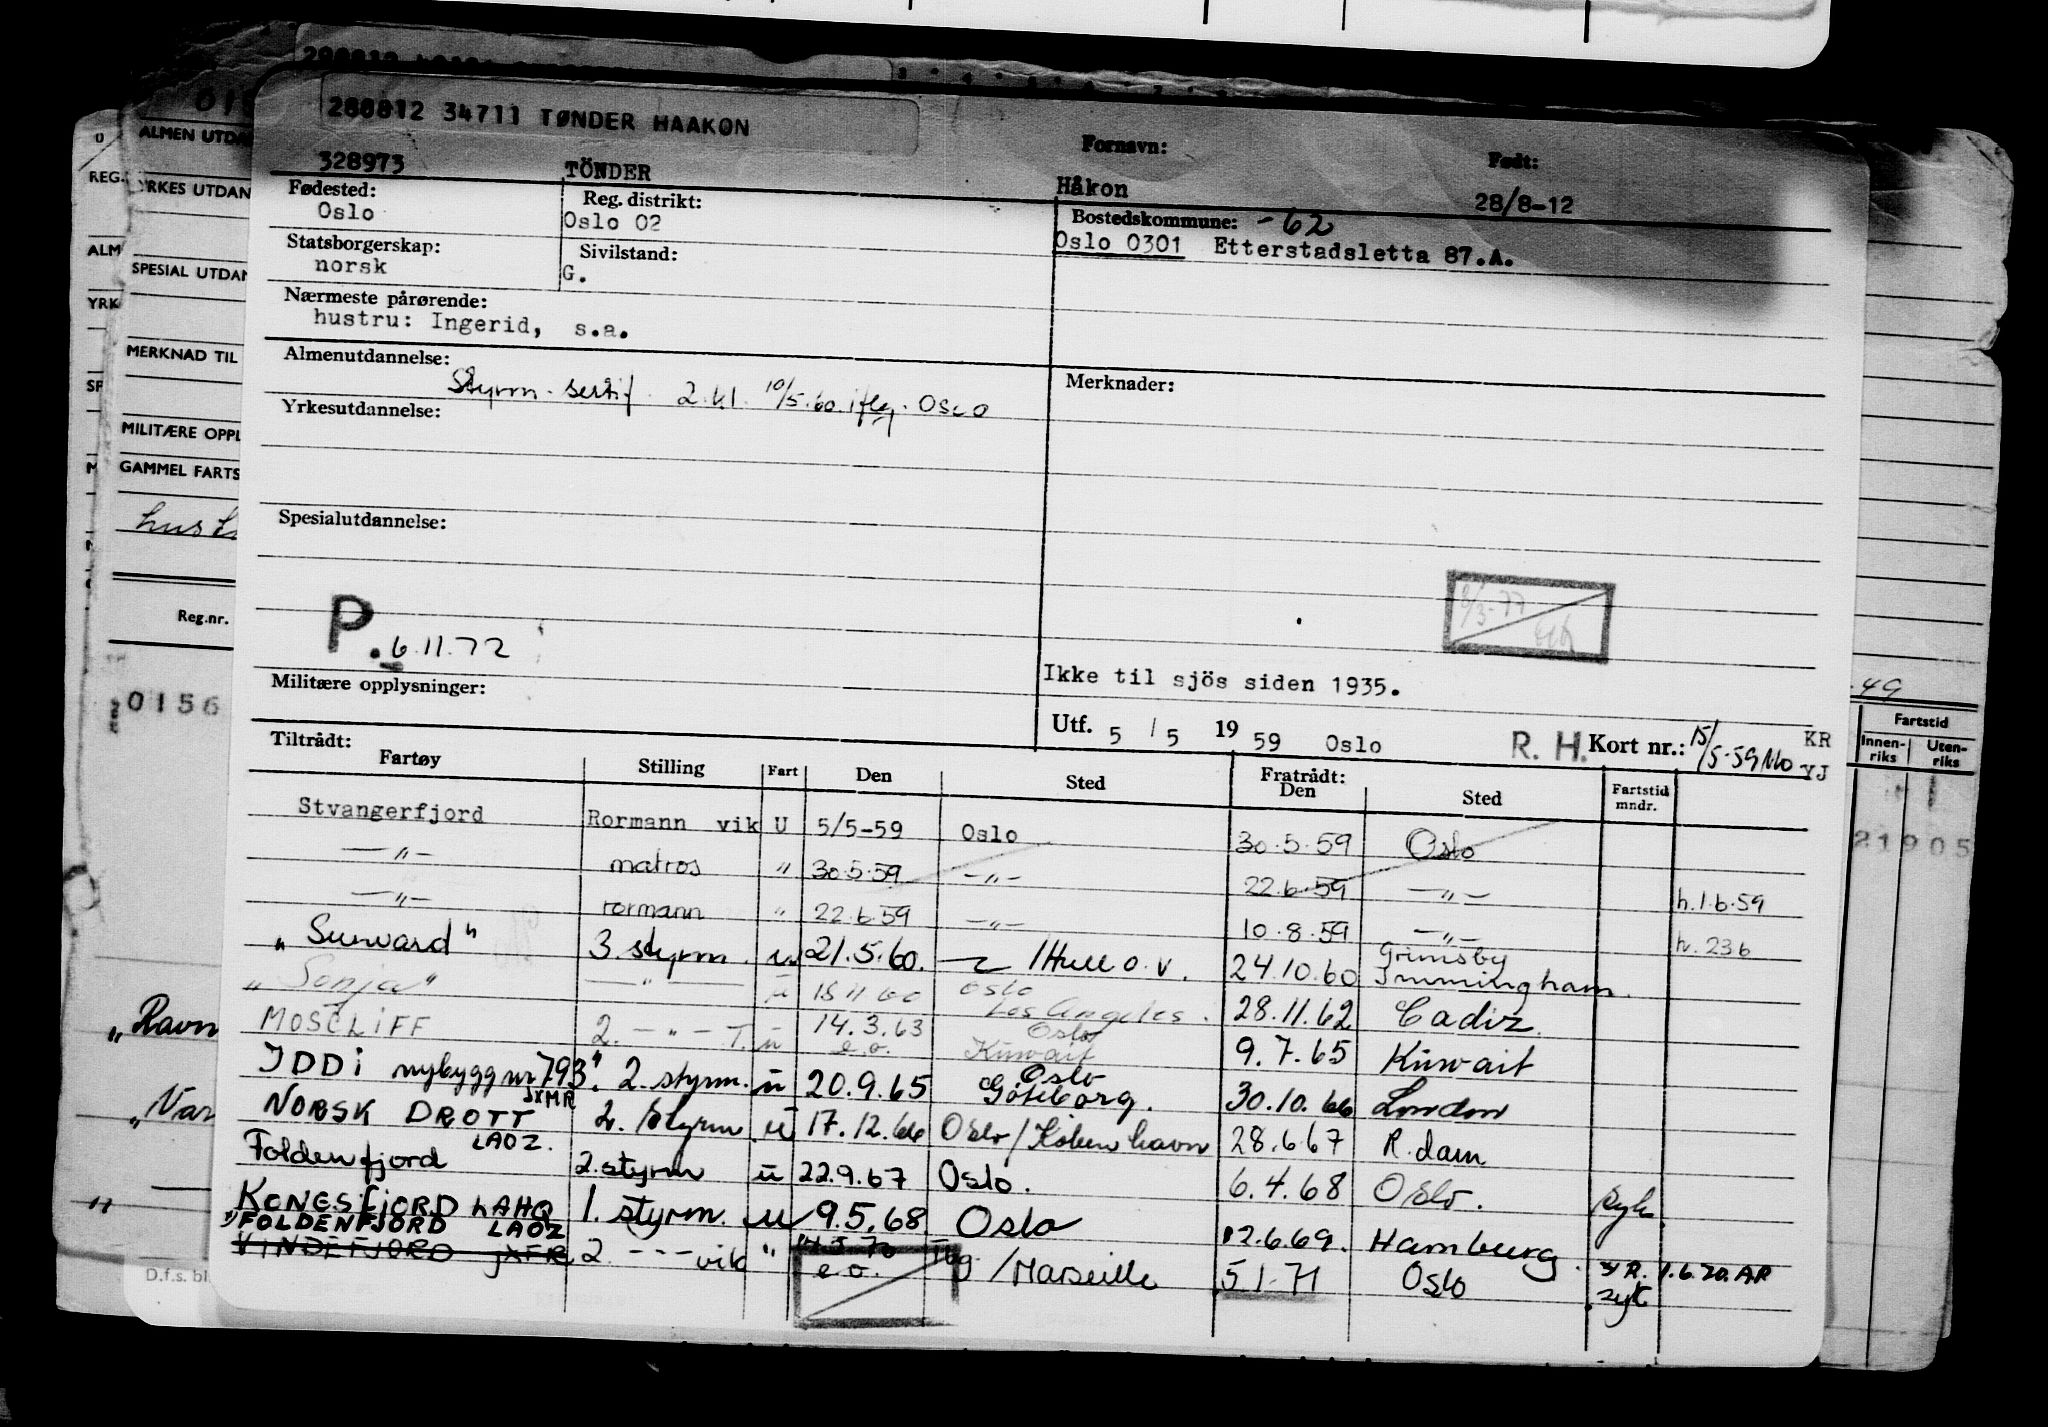 280812 34711 TØNDER HAAKON
Fornavn: Født:
328973 TÖNDER Håkon 28/8-12
Fødested: Reg. distrikt: Bostedskommune: -62
Oslo Oslo 02 Oslo 0301 Etterstadsletta 87.A.
Statsborgerskap: Sivilstand:
norsk G.
Nærmeste pårørende:
hustru: Ingerid, s.a.
Almenutdannelse: Merknader:
Styrm. sertif. 2.kl. 10/5.60. iflg. Oslo
Yrkesutdannelse:
Spesialutdannelse:
P. 6.11.72
8/3-77
Ikke til sjös siden 1935.
Militære opplysninger:
Utf. 5 / 5 19 59 Oslo R. H. Kort nr.: 15/5-59 KR
VJ
Tiltrådt: Fratrådt:
Fartøy Stilling Fart Den Sted Den Sted Fartstid mndr.
Stvangerfjord Rormann vik U 5/5-59 Oslo 30.5.59 Oslo
—"— matros " 30.5.59 —"— 22.6.59 —"— h.1.6.59
—"— rormann " 22.6.59 —"— 10.8.59 —"— h. 236
"Sunvard" 3. styrm. u 21.5.60. Hull o.v. 24.10.60 Grimsby Immingham.
"Sonja" —"— u 18 11 60 Oslo Los Angeles. 28.11.62 Cadiz.
MOSCLIFF 2. —"— T. u 14.3.63 e.o. Oslo Kuwait 9.7.65 Kuwait
IDDI nybygg nr 793". 2. styrm. u 20.9.65 Oslo Göteborg. 30.10.66 London
NORSK DROTT JXMR 2. styrm u 17.12.66 Oslo/København 28.6.67 R.dam
Foldenfjord LAOZ. 2. styrm u 22.9.67 Oslo. 6.4.68 Oslo. syk.
KONGSFJORD LAHQ 1. styrm. u 9.5.68 Oslo 12.6.69. Hamburg.
"FOLDENFJORD LAOZ
VINDEFJORD JXFR 2. --- vik " e.o. Tbg/Marseille 5.1.71 Oslo syk R. 1.6.70. AR
ALMEN UTDA
REG.
YRKES UTDAN
ALM
SPESIAL UTDAN
YRK
MERKNAD TIL
SP
MILITÆRE OPPL
GAMMEL FARTS
Reg.nr.
0156
"Ravn
"Var
D.f.s. bl.
.49
Fartstid
Innenriks Utenriks
21905